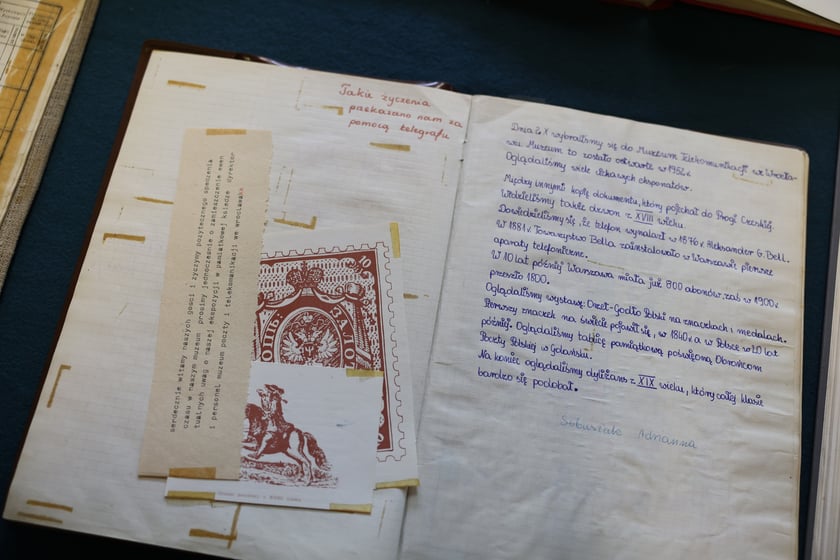 Takie życzenia
przekazano nam za
pomocą telegrafu
serdecznie witamy naszych gości i życzymy pożytecznego spędzenia
czasu w naszym muzeum prosimy jednocześnie o zamieszczenie ewen
tualnych uwag o naszej ekspozycji w pamiątkowej księdze dyrektor
i personel muzeum poczty i telekomunikacji we wrocławiu
ЗАЛОГ
Dnia 2 X wybraliśmy się do Muzeum Telekomunikacji we Wrocła-
wiu. Muzeum to zostało otwarte w 1956 r.
Oglądaliśmy wiele ciekawych eksponatów.
Między innymi kopię dokumentu, który pojechał do Pragi Czeskiej.
Widzieliśmy także dzwon z XVIII wieku.
Dowiedzieliśmy się, że telefon wynalazł w 1876 r. Aleksander G. Bell.
W 1881 r. Towarzystwo Bella zainstalowało w Warszawie pierwsze
aparaty telefoniczne.
W 10 lat później Warszawa miała już 800 abonów, zaś w 1900 r.
przeszło 1800.
Oglądaliśmy wystawę Orzeł-Godło Polski na znaczkach i medalach.
Pierwszy znaczek na świecie pojawił się, w 1840 r. a w Polsce w 20 lat
później. Oglądaliśmy tablicę pamiątkową poświęconą Obrońcom
Poczty Polskiej w Gdańsku.
Na koniec oglądaliśmy dyliżans z XIX wieku, który całej klasie
bardzo się podobał.
Adrianna